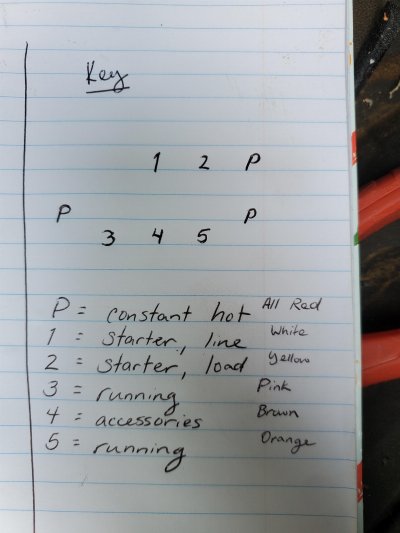 Key
1 2 P
P P
3 4 5
P = constant hot All Red
1 = starter, line White
2 = starter, load Yellow
3 = running Pink
4 = accessories Brown
5 = running Orange